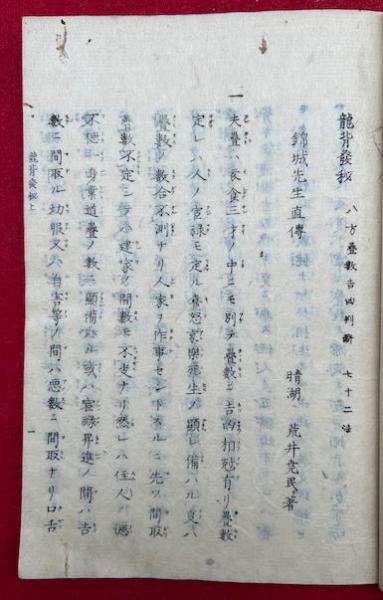 龍背發秘 八方疊數吉凶判斷 七十二法
錦城先生直傳
晴湖 荒井堯民著
一
夫疊ハ衣食三才ノ中ニモ別テ疊數ニ吉凶相尅有リ疊數
定レハ人ノ官禄モ定ル喜怒哀樂穏生ノ顯備ハル夏ハ
疊數ノ數合不測ナリ人家ヲ作事セントスルニ先ツ間取
疊數不定シテハ建家ノ間數モ不定ナリ然レハ住人ノ
不徳ノ所業道疊ノ數ニ顯備ハル或ハ官禄昇進ノ間ハ吉
數ニ間取ル劫賊又ハ自害等ノ間ハ悪數ニ間取ナリ口舌
龍背發秘上
一